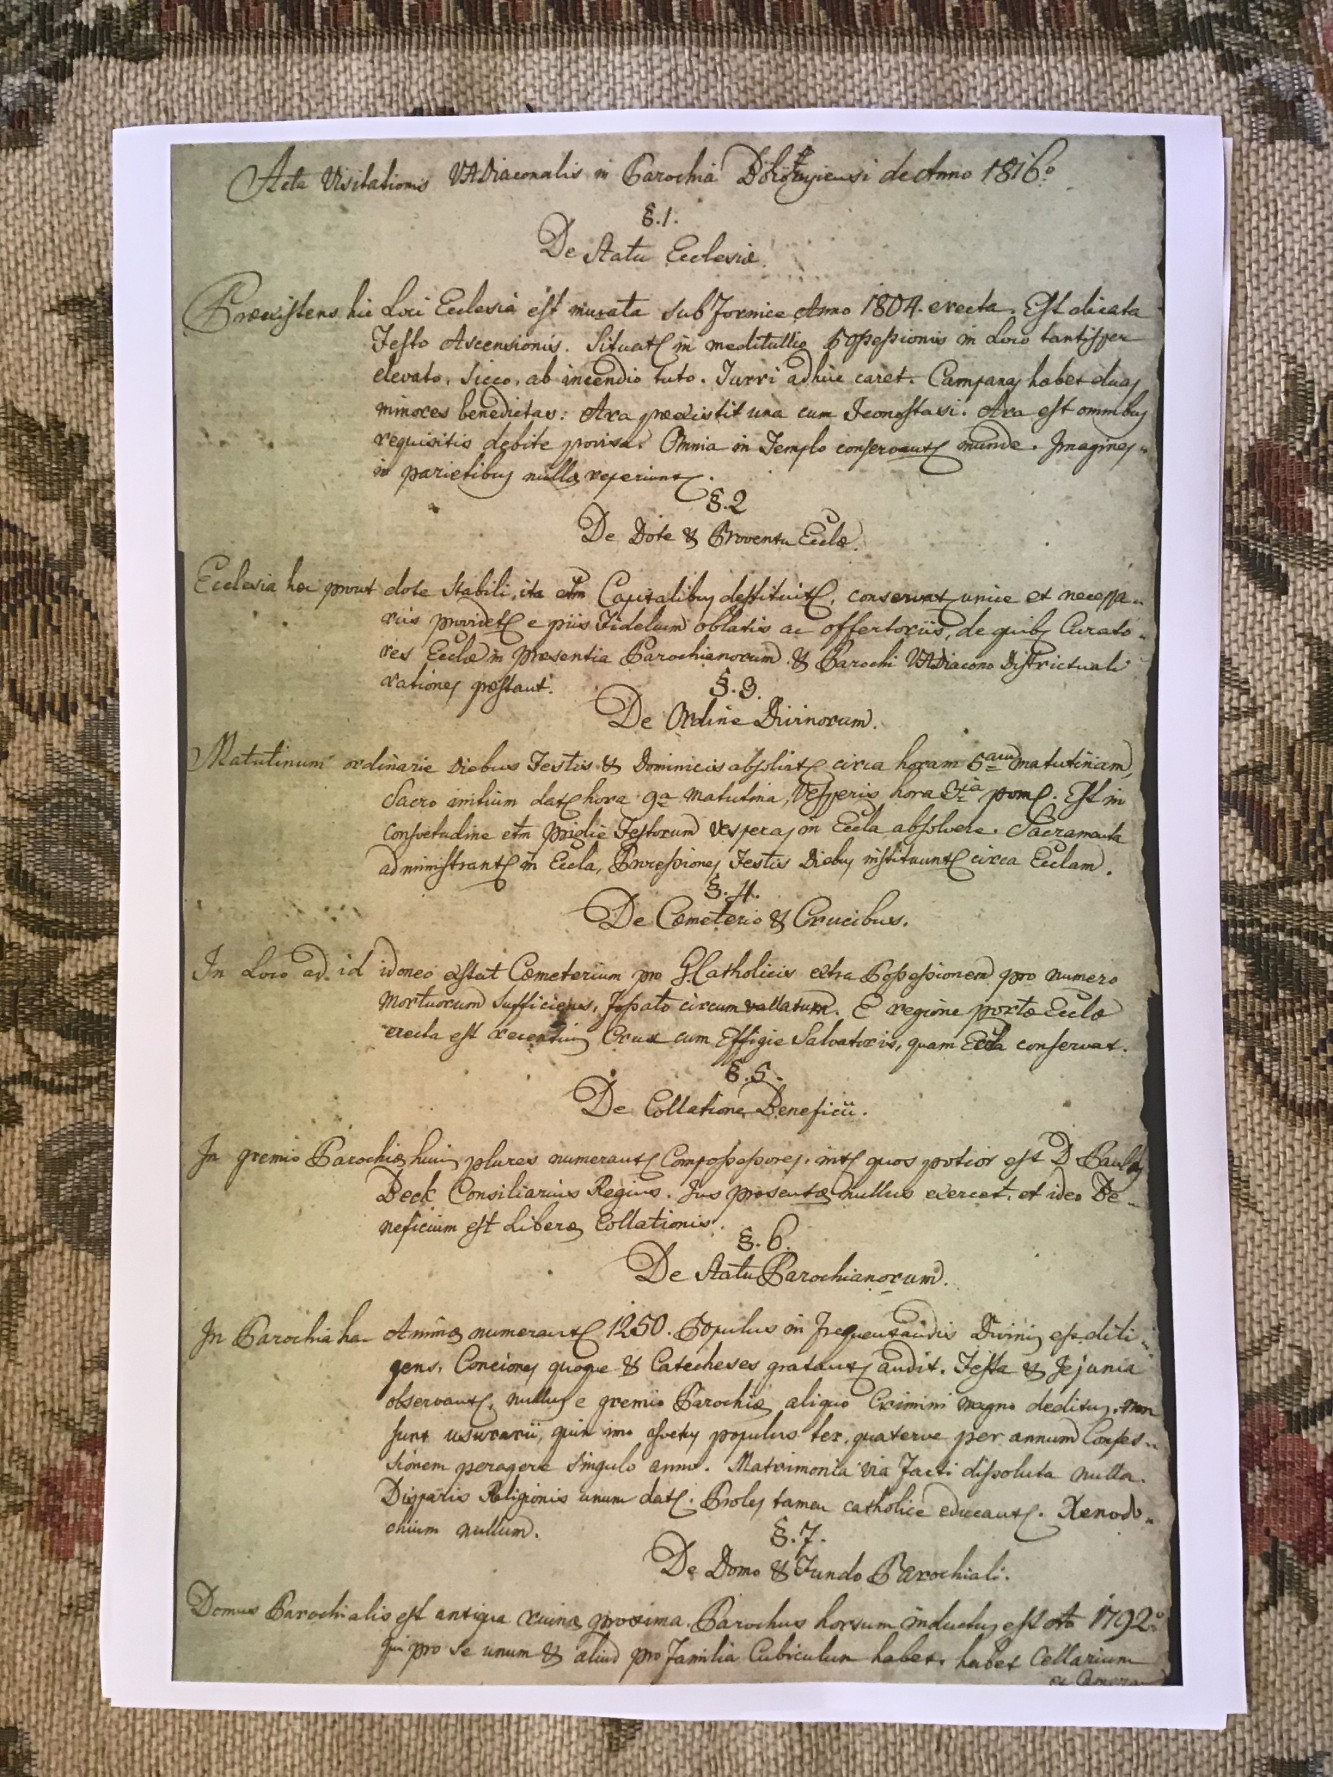 Acta Visitationis VADiaconalis in Parochia de Anno 1816º
§.1.
De Statu Ecclesiæ.
Præexistens hic Loci Ecclesia est murata sub fornice Anno 1804. erecta. Est dicata
Festo Ascensionis. Situatr in meditullio Possessionis in Loco tantisper
elevato, sicco, ab incendio tuto. Turri adhuc caret. Campanas habet duas
minores benedictas: Ara præexistit una cum Iconostasi. Ara est omnibus
requisitis debite provisa. Omnia in Templo conservantr munde. Imagines
in parietibus nullæ reperiuntr.
§.2
De Dote & Proventu Ecclæ.
Ecclesia hæc prout dote stabili, ita etm Capitalibus destituitr, conservatr unice et necessa-
riis providetr e piis Fidelium oblatis ac offertoriis, de quibus Curato-
res Ecclæ in præsentia Parochianorum & Parochi VADiacono Districtuali
rationes præstant.
§.3.
De Ordine Divinorum.
Matutinum ordinarie diebus Festis & Dominicis absolvitr circa horam 5am matutinam,
Sacro initium datr hora 9a matutina, Vesperis hora 3tia pom. Est in
Consvetudine etm Festorum vesperas in Eccla absolvere. Sacramenta
administrantr in Eccla, Processiones Festis Diebus instituuntr circa Ecclam.
§.4.
De Cæmeterio & Crucibus.
In Loco ad id idoneo exstat Cæmeterium pro G.Catholicis extra Possessionem pro numero
Mortuorum sufficiens, fossato circumvallatum. E regione portæ Ecclæ
erecta est recentius Crux cum Effigie Salvatoris, quam Eccla conservat.
§.5.
De Collatione Beneficii.
In gremio Parochiæ huius plures numerantr Compossessores, intr quos potior est D. Paulus
Deck Consiliarius Regius. Jus præsentæ nullus exercet, et ideo Be-
neficium est Liberæ Collationis.
§.6.
De Statu Parochianorum.
In Parochia hac Animæ numerantr 1250. Populus in frequentandis Divinis est dili-
gens, Conciones quoque & Catecheses gratantr audit. Festa & Jejunia
observantr, nullus e gremio Parochiæ aliquo Crimini magno deditus, non
sunt usurarii, quin imo asvetus populus ter, quaterve per annum Confes-
sionem peragere singulo anno. Matrimonia via facti dissoluta nulla.
Disparis Religionis unum datr. Proles tamen catholice educantr. Xenodo-
chium nullum.
§.7.
De Domo & Fundo Parochiali.
Domus Parochialis est antiqua ruinæ proxima. Parochus horsum inductus est Ao 1792º
qui pro se unum & aliud pro Familia Cubiculum habet, habet Cellarium